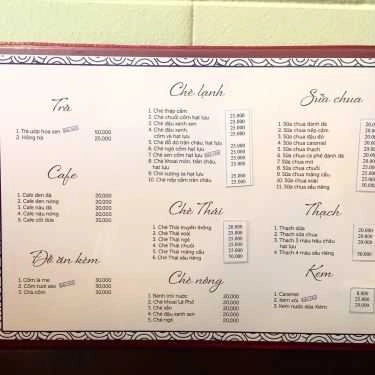 Trà
1. Trà ướp hoa sen 50,000
2. Hồng trà 25,000
Cafe
1. Cafe đen đá 20,000
2. Cafe đen nóng 20,000
3. Cafe nâu đá 20,000
4. Cafe nâu nóng 20,000
5. Cafe cốt dừa 35,000
Đồ ăn kèm
1. Cốm lá me 30,000
2. Cốm tươi xào 30,000
3. Chả cốm 30,000
Chè lạnh
1. Chè thập cẩm 25.000
2. Chè chuối cốm hạt lựu 25.000
3. Chè đậu xanh sen 25.000
4. Chè đậu xanh, 25.000
cốm và hạt lựu
5. Chè đỗ đỏ trân châu, hạt lựu
6. Chè ngô cốm hạt lựu
7. Chè sen cốm hạt lựu
8. Chè khoai môn, trân châu,
hạt lựu
9. Chè sương sa hạt lựu 25.000
10. Chè nếp cẩm trân châu 25.000
Chè Thái
1. Chè Thái truyền thống 20.000
2. Chè Thái xoài 25.000
3. Chè Thái ngô 25.000
4. Chè Thái chuối 25.000
5. Chè Thái mãng cầu 25.000
6. Chè Thái sầu riêng 30.000
Chè nóng
1. Bánh trôi nước 20,000
2. Chè khoai Lệ Phố 20,000
3. Chè ngô cốm 20,000
4. Chè đậu xanh sen 20,000
5. Chè ngô 20,000
6. Chè chuối 20,000
Sữa chua
1. Sữa chua đánh đá
2. Sữa chua nếp cẩm
3. Sữa chua đậu đỏ
4. Sữa chua caramel
5. Sữa chua thạch
6. Sữa chua cà phê đánh đá
7. Sữa chua mít
8. Sữa chua ngô
9. Sữa chua mãng cầu
10. Sữa chua xoài
11. Sữa chua sầu riêng
Thạch
1. Thạch dừa
2. Thạch sữa chua
3. Thạch 3 màu hầu châu
hạt lựu
4. Thạch 4 màu sầu riêng
Kem
1. Caramel 8.000
2. Kem xôi 25.000
3. Kem nước dừa Kèm 20.000